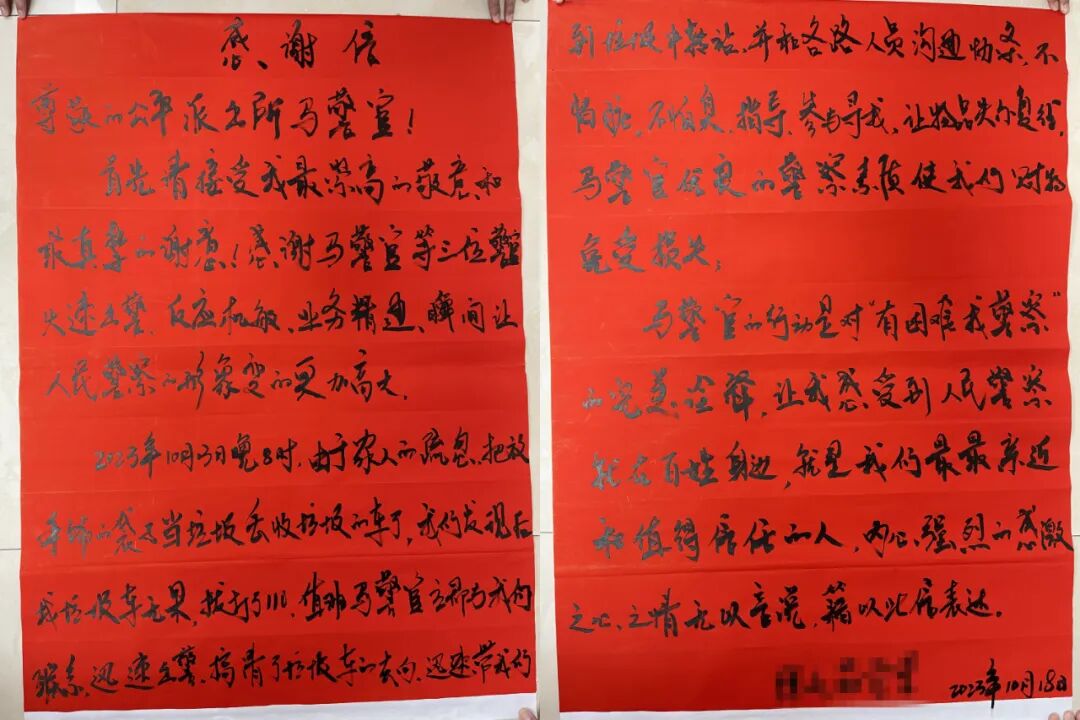 感谢信
尊敬的公平派出所马警官!
首先请接受我最崇高的敬意和
最真挚的谢意!感谢马警官等三位警官
火速出警、反应机敏、业务精通、瞬间让
人民警察的形象变的更加高大。
2023年10月3日晚8时,由于家人的疏忽、把放
的袋子当垃圾丢收垃圾的车了,我们发现后
找垃圾车无果,拨打了110,值班马警官立即与我们
联系,迅速出警、搞清了垃圾车的去向、迅速带我们
到垃圾中转站、并和各路人员沟通协条、不
怕脏、不怕臭、指导、参与寻找、让物品失而复得,
马警官优良的警察素质使我们财物
免受损失;
马警官的行动是对“有困难找警察”
的完美诠释,让我感受到人民警察
就在百姓身边,就是我们最最亲近
和值得信任的人,内心强烈的感激
之心、之情无以言说,藉以此信表达。
2023年10月18日